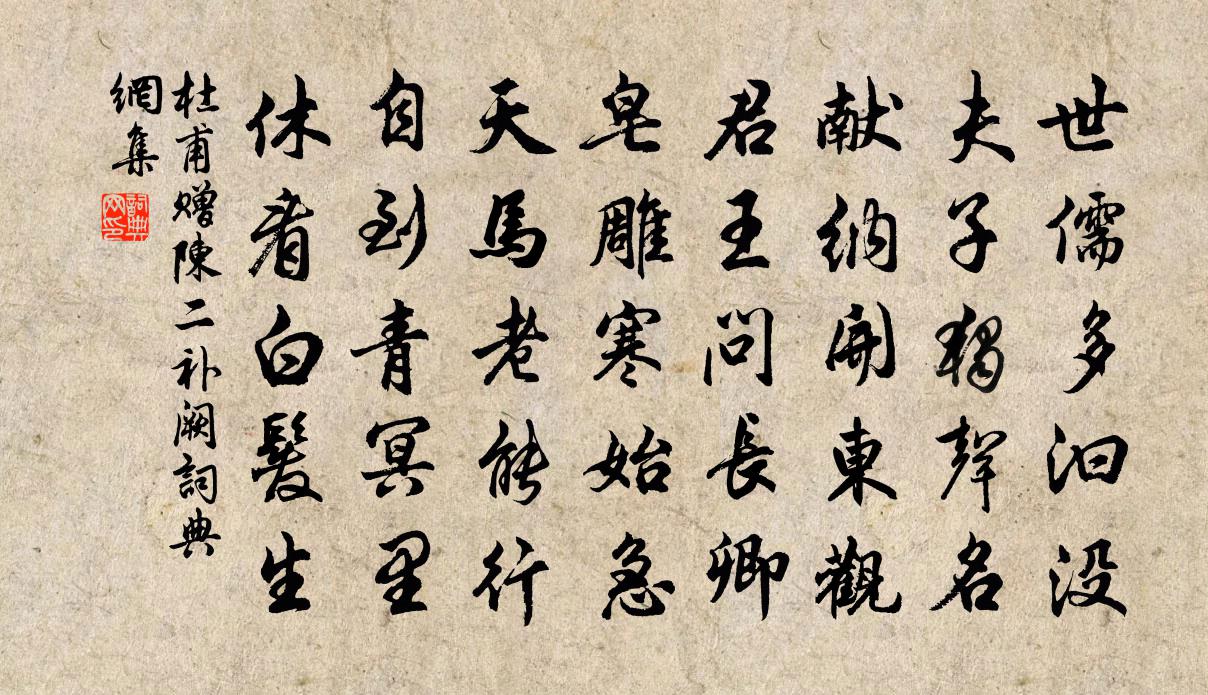 世儒多汩没
夫子獨聲名
献納開東觀
君王問長卿
皂雕寒始急
天馬老能行
自到青冥里
休看白髮生
杜甫赠陳二补阙詞典
網集
詞典網印